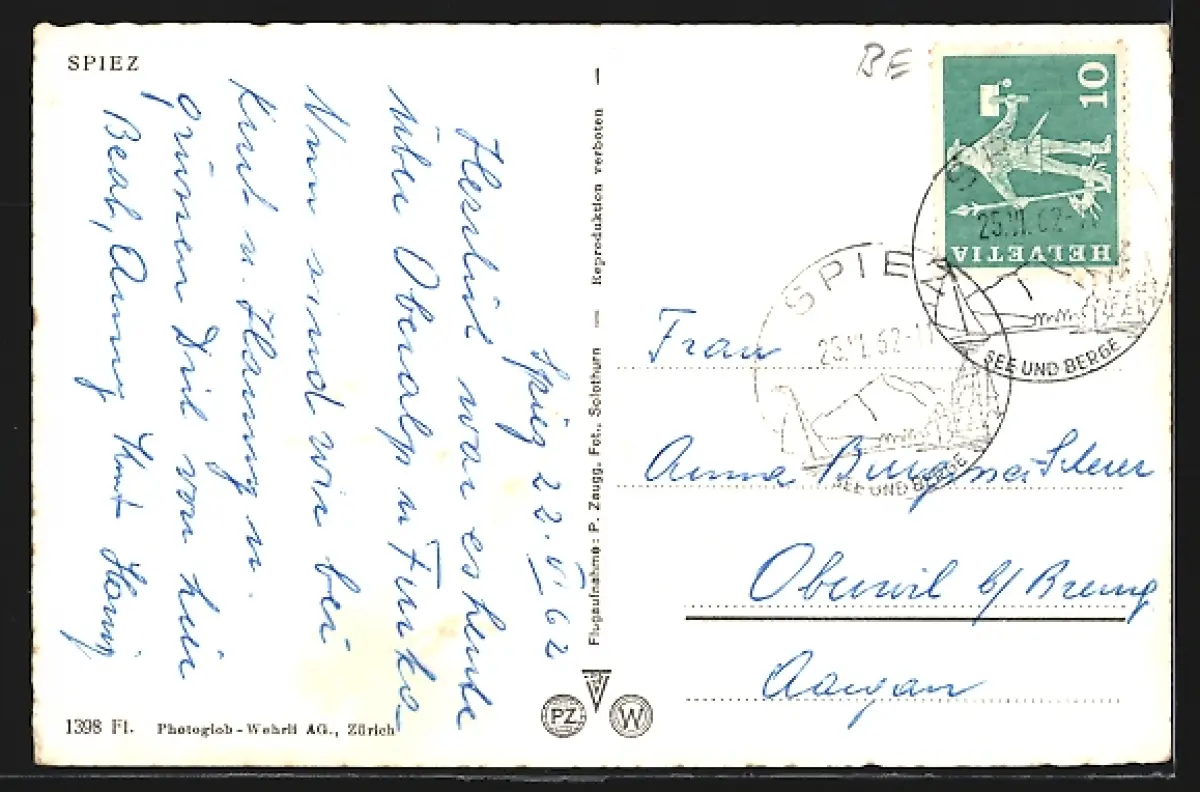 SPIEZ
BE
10
HELVETIA
SPIEZ
25.VI.62-11
SEE UND BERGE
SPIEZ
25.VI.62-11
SEE UND BERGE
Spiez 22.VI 62
Herrlich war es heute
über Oberalp u Furka
Nun sind wir bei
Kurt u. Hanny u.
grüssen Dich von hier
Beat, Anny Kurt Hanny
Frau
Anna Burg Scherer
Oberwil b/ Bremg
Aargau
Flugaufnahme: P. Zaugg, Fot., Solothurn — Reproduktion verboten
PZ
W
1398 Ft. Photoglob-Wehrli AG., Zürich